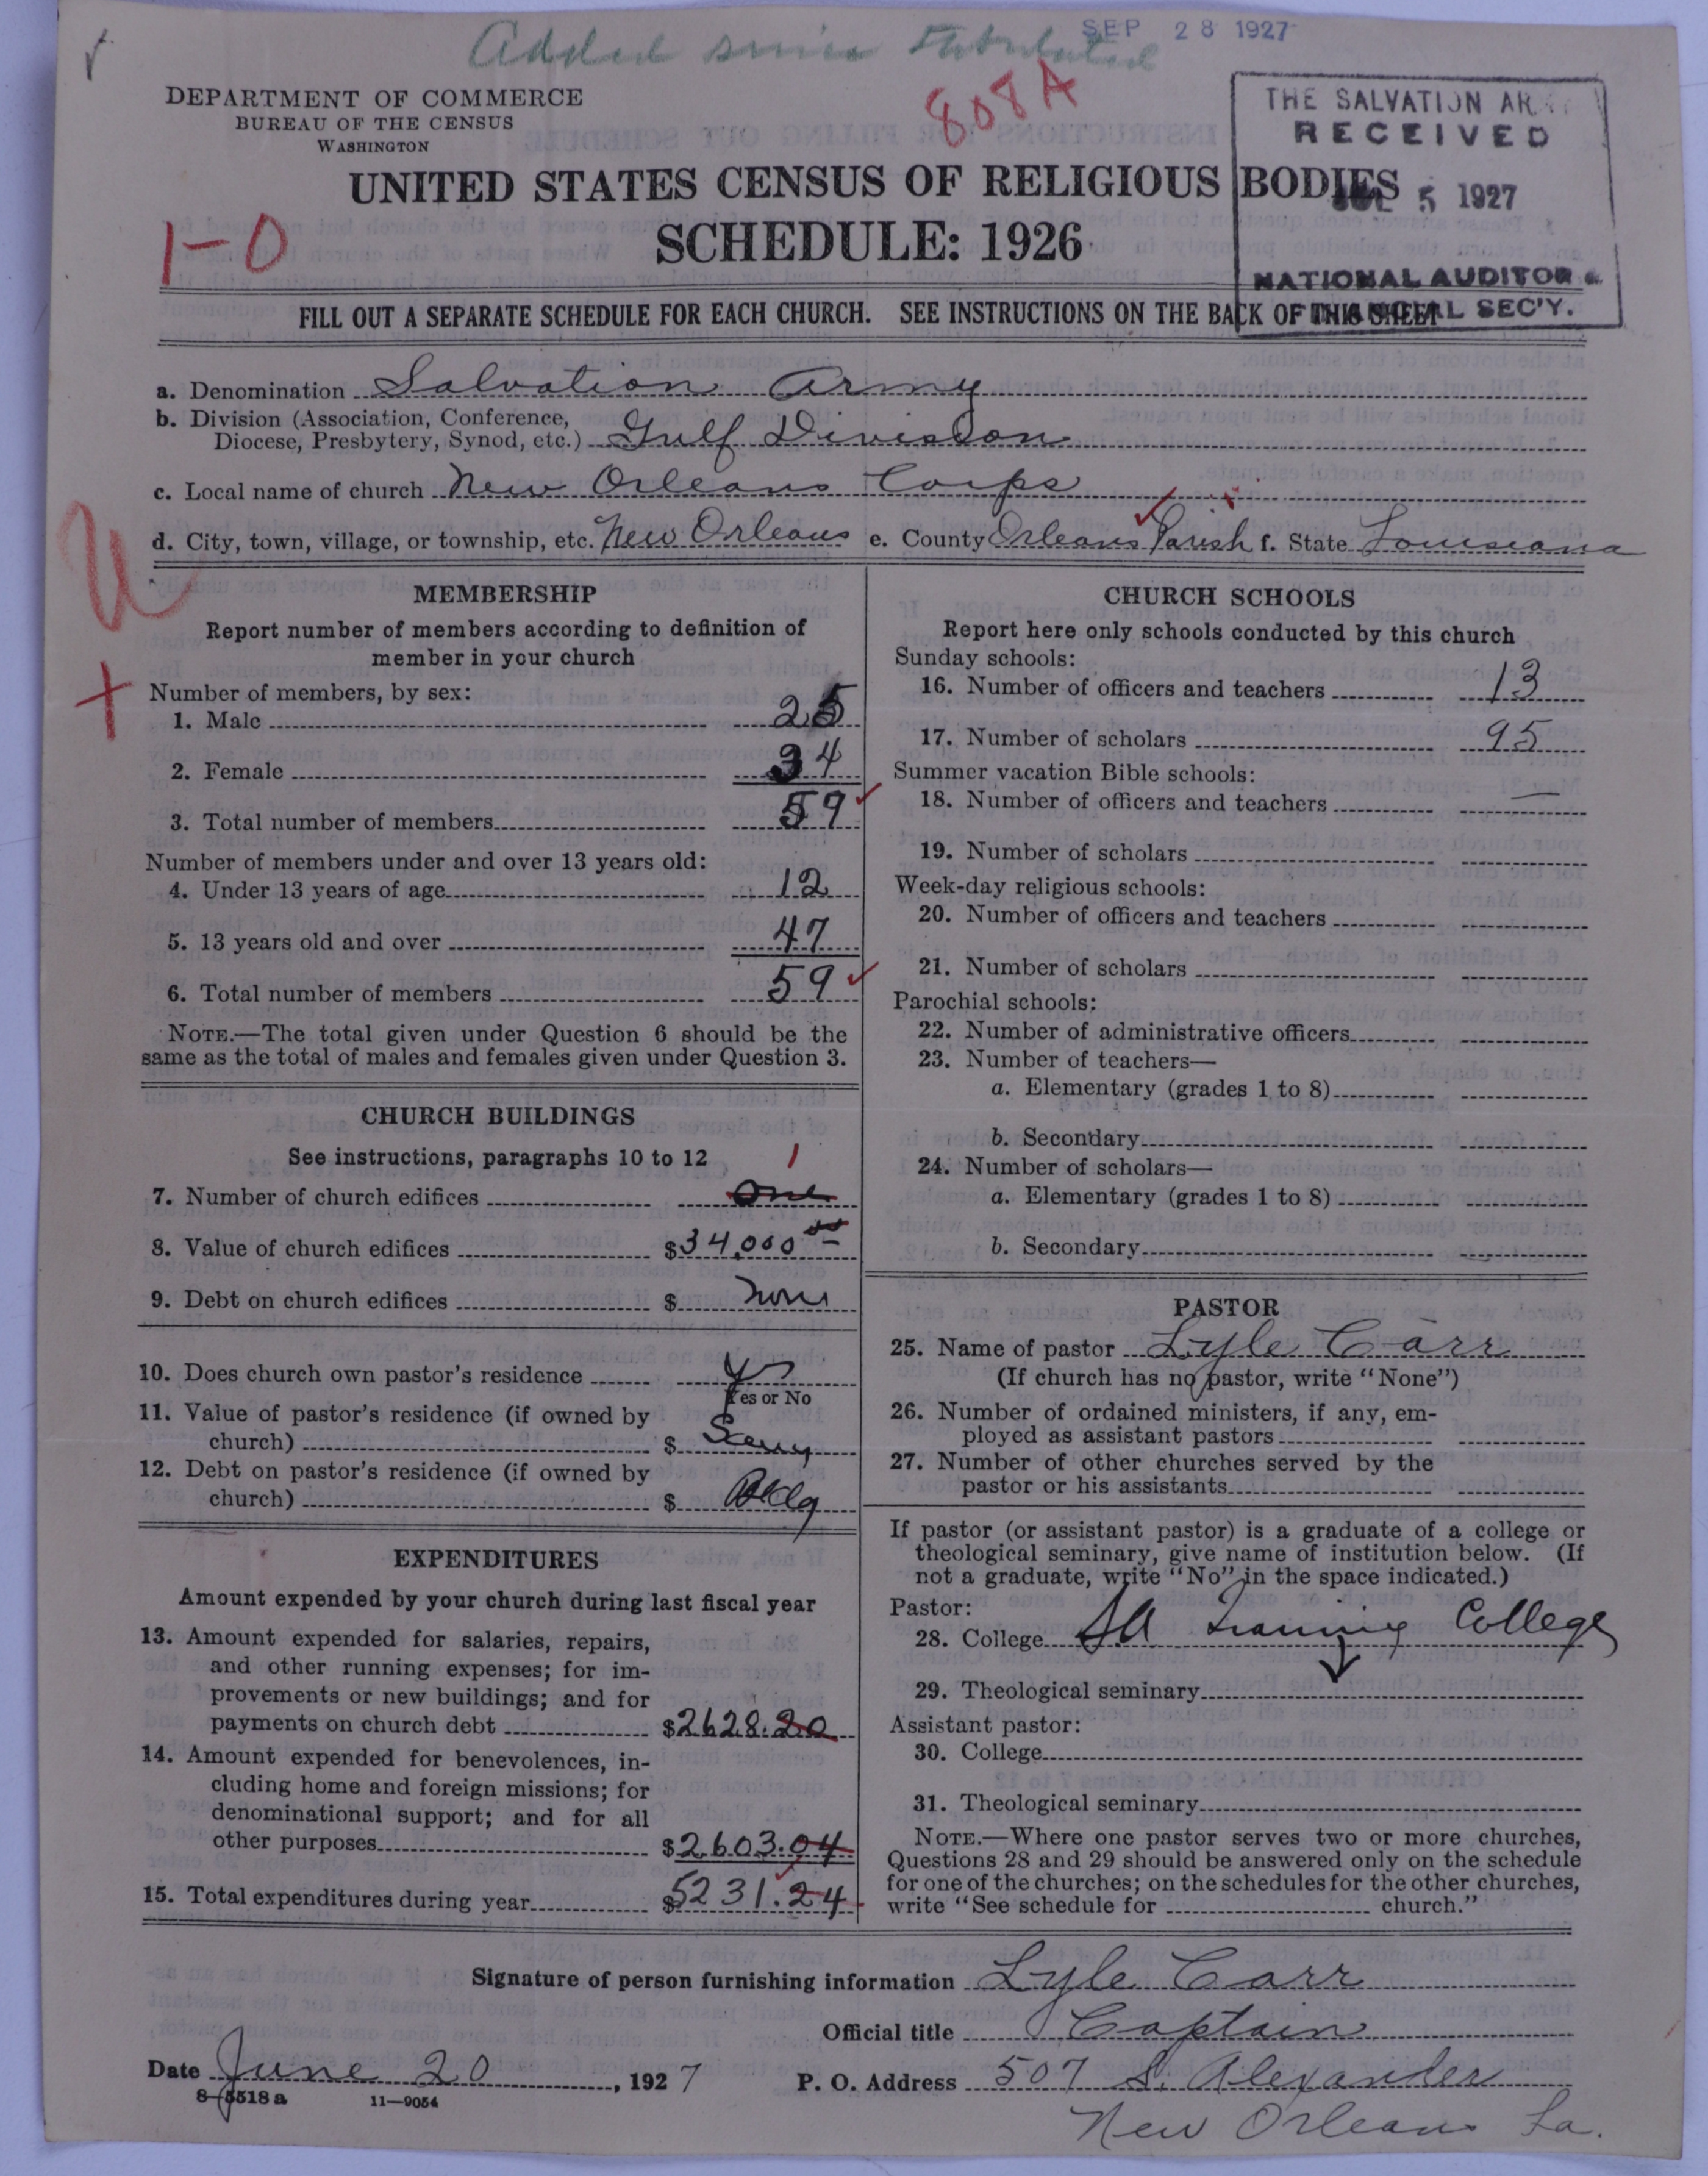 Added since tabulated
SEP 28 1927
808A
DEPARTMENT OF COMMERCE
BUREAU OF THE CENSUS
WASHINGTON
THE SALVATION AR
RECEIVED
5 1927
NATIONAL AUDITOR &
SEC'Y.
UNITED STATES CENSUS OF RELIGIOUS BODIES
SCHEDULE: 1926
1-0
FILL OUT A SEPARATE SCHEDULE FOR EACH CHURCH. SEE INSTRUCTIONS ON THE BACK OF THIS SHEET
a. Denomination Salvation Army
b. Division (Association, Conference,
Diocese, Presbytery, Synod, etc.) Gulf Division
c. Local name of church New Orleans Corps
d. City, town, village, or township, etc. New Orleans e. County Orleans Parish f. State Louisiana
MEMBERSHIP
Report number of members according to definition of
member in your church
Number of members, by sex:
1. Male 25
2. Female 34
3. Total number of members 59
Number of members under and over 13 years old:
4. Under 13 years of age 12
5. 13 years old and over 47
6. Total number of members 59
NOTE.—The total given under Question 6 should be the
same as the total of males and females given under Question 3.
CHURCH BUILDINGS
See instructions, paragraphs 10 to 12
1
7. Number of church edifices one
8. Value of church edifices $34,000 00
9. Debt on church edifices $ none
10. Does church own pastor's residence yes
Yes or No
11. Value of pastor's residence (if owned by
church) $
12. Debt on pastor's residence (if owned by
church) $ Bldg
EXPENDITURES
Amount expended by your church during last fiscal year
13. Amount expended for salaries, repairs,
and other running expenses; for im-
provements or new buildings; and for
payments on church debt $2628.20
14. Amount expended for benevolences, in-
cluding home and foreign missions; for
denominational support; and for all
other purposes $2603.04
15. Total expenditures during year $5231.24
CHURCH SCHOOLS
Report here only schools conducted by this church
Sunday schools:
16. Number of officers and teachers 13
17. Number of scholars 95
Summer vacation Bible schools:
18. Number of officers and teachers —
19. Number of scholars
Week-day religious schools:
20. Number of officers and teachers
21. Number of scholars
Parochial schools:
22. Number of administrative officers
23. Number of teachers—
a. Elementary (grades 1 to 8)
b. Secondary
24. Number of scholars—
a. Elementary (grades 1 to 8)
b. Secondary
PASTOR
25. Name of pastor Lyle Carr
(If church has no pastor, write "None")
26. Number of ordained ministers, if any, em-
ployed as assistant pastors
27. Number of other churches served by the
pastor or his assistants
If pastor (or assistant pastor) is a graduate of a college or
theological seminary, give name of institution below. (If
not a graduate, write "No" in the space indicated.)
Pastor:
28. College SA Training College
29. Theological seminary
Assistant pastor:
30. College
31. Theological seminary
NOTE.—Where one pastor serves two or more churches,
Questions 28 and 29 should be answered only on the schedule
for one of the churches; on the schedules for the other churches,
write "See schedule for church."
Signature of person furnishing information Lyle Carr
Official title Captain
Date June 20, 1927 P. O. Address 507 S. Alexander
8-5518a 11-9054
New Orleans La.